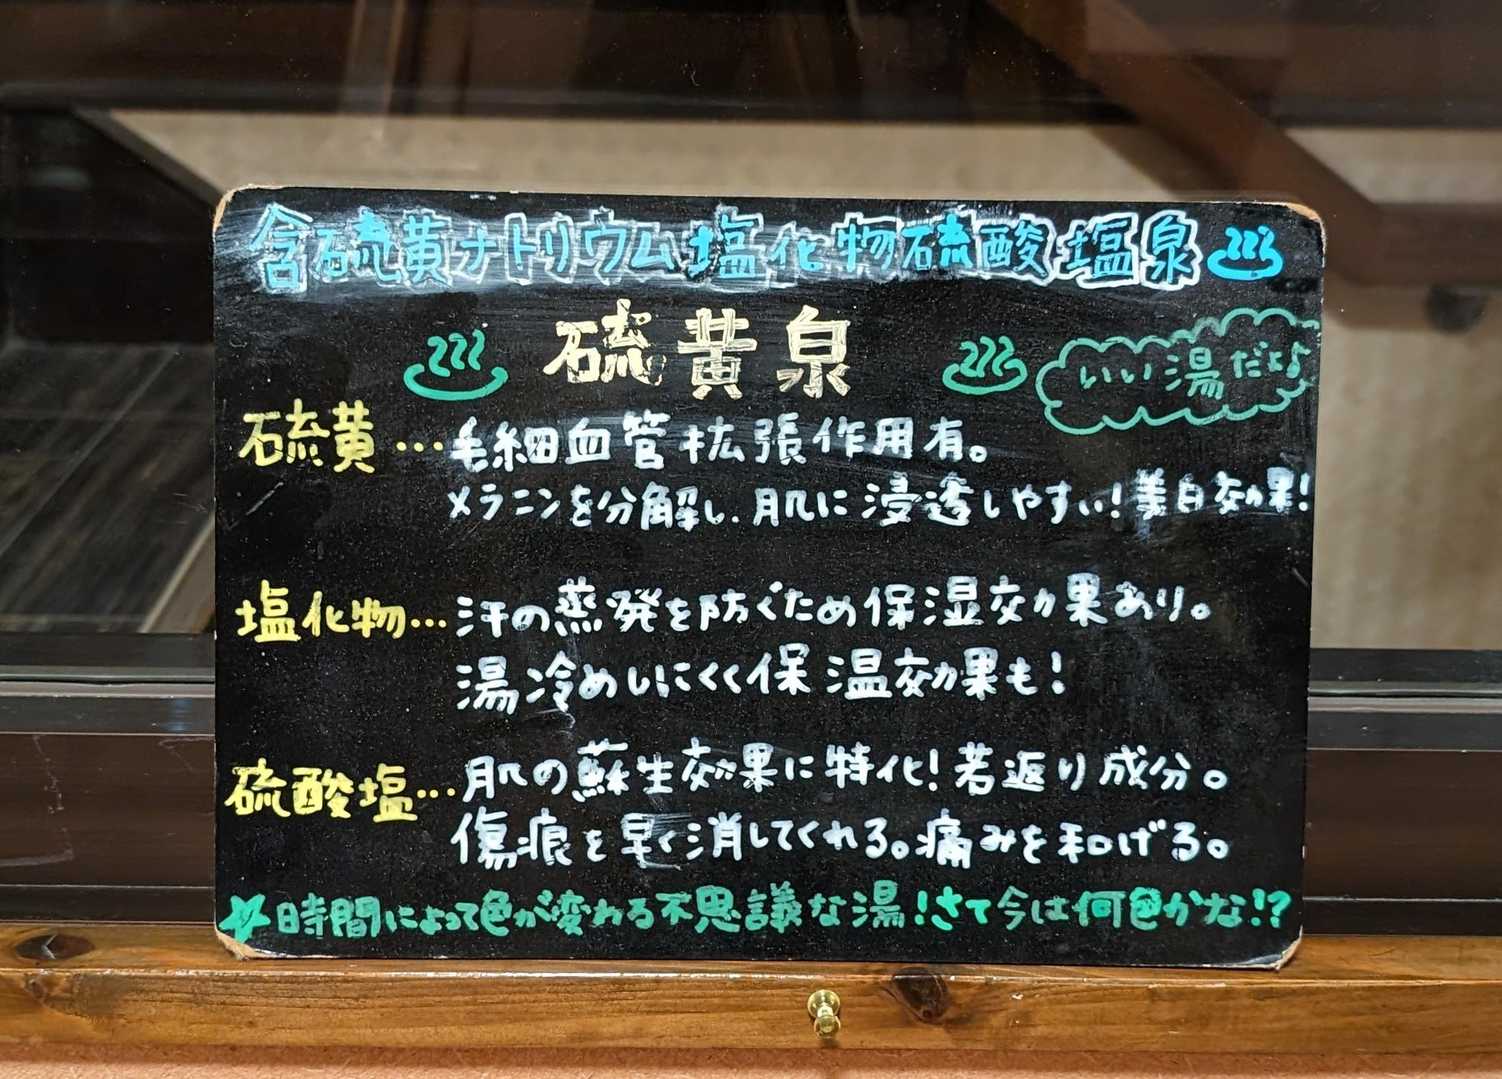 含硫黄ナトリウム塩化物硫酸塩泉♨
♨ 硫黄泉 ♨
いい湯だよぉ
硫黄…毛細血管拡張作用有。
メラニンを分解し、肌に浸透しやすい!美白効果!
塩化物…汗の蒸発を防ぐため保湿効果あり。
湯冷めしにくく保温効果も!
硫酸塩…肌の蘇生効果に特化!若返り成分。
傷痕を早く消してくれる。痛みを和げる。
☆時間によって色が変わる不思議な湯!さて今は何色かな!?